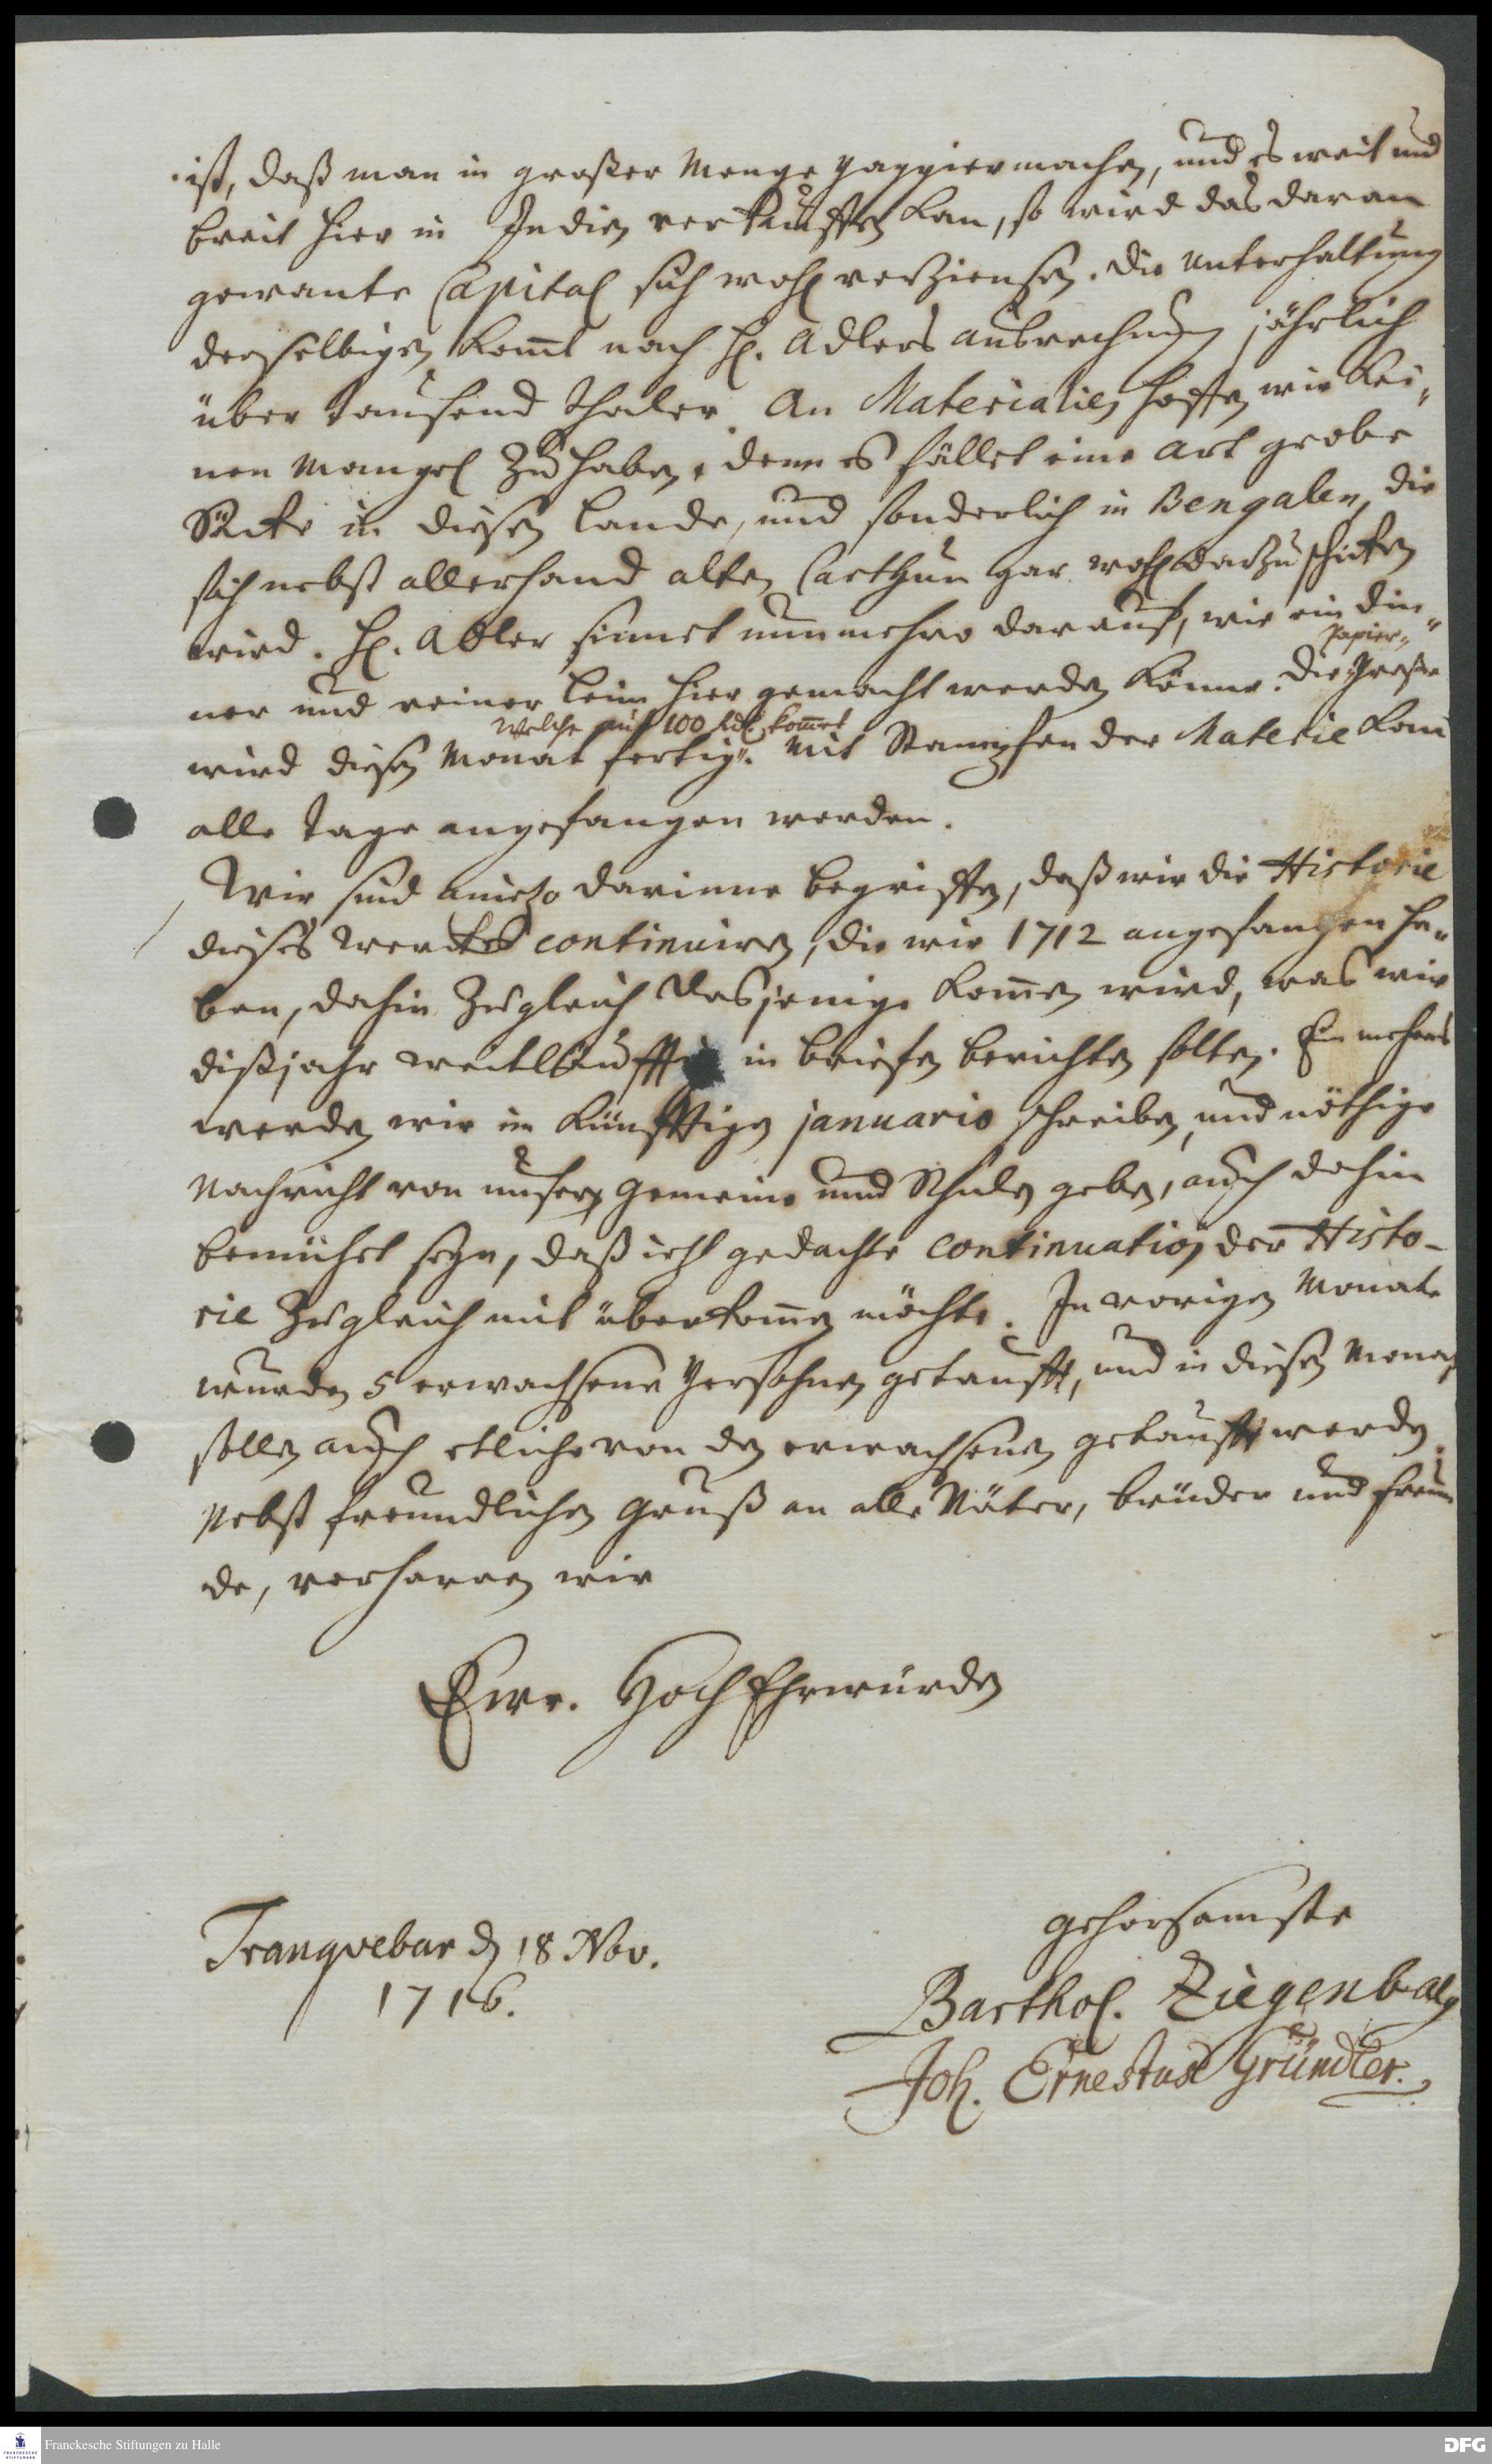 ist, daß man in großer Menge pappier machen, und es weit und
breit hier in Indien verkauffen kan, so wird das daran
gewante Capital sich wohl verzinsen. Die Unterhaltung
derselbigen komt nach H. Adlers ausrechnung jährlich
über tausend Thaler. An Materialien hoffen wir kei-
nen Mangel zu haben, denn es fället eine art grobe
Säcke in diesen Lande, und sonderlich in Bengalen, die
sich nebst allerhand alten Carthun gar wohl dazu schicken
wird. H. Adler sinnet nunmehro darauf, wie ein dün-
ner und reiner Leim hier gemacht werden könne. Die Papier- Preße
welche auf 100 Rdl. kommet
wird diesen Monat fertig. Mit Stampfen der Materie kan
alle Tage angefangen werden.
Wir sind anietzo darinne begriffen, daß wir die Historie
dieses Wercks continuiren, die wir 1712 angefangen ha-
ben, dahin zugleich dasjenige kommen wird, was wir
dißjahr weitläufftig in briefen berichten solten. Ein mehrers
werden wir im künfftigen januario schreiben, und nöthige
Nachricht von unserer Gemeine und Schulen geben, auch dahin
bemühet seyn, daß itzt gedachte continuation der Histo-
rie zugleich mit überkommen möchte. In vorigen Monate
wurden 5 erwachsene Persohnen getaufft, und in diesen Monat
sollen auch etliche von den erwachsenen getaufft werden.
Nebst freundlichen Gruß an alle Väter, brüder und Freun
de, verharren wir
Ewr. HochEhrwürden
gehorsamste
Tranqvebar d 18 Nov.
1716.
Barthol. Ziegenbalg
Joh. Ernestus Gründler.
Franckesche Stiftungen zu Halle
DFG